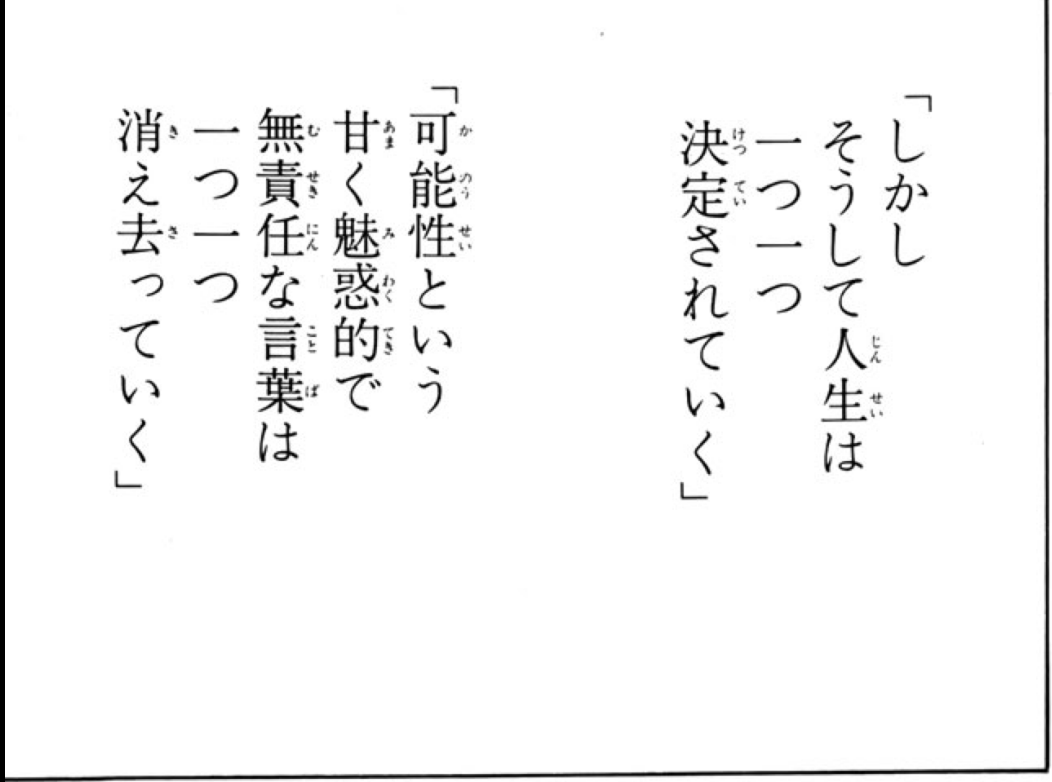 「しかし
そうして人生は
一つ一つ
決定されていく」
「可能性という
甘く魅惑的で
無責任な言葉は
一つ一つ
消え去っていく」